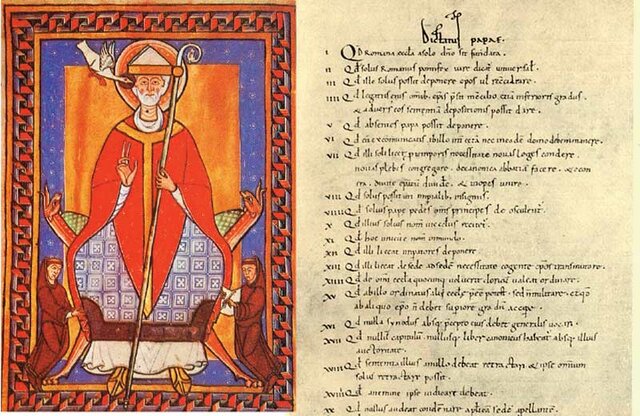 Dictatus papae.
I Qd Romana eccla a solo dño sit fundata.
II Qd solus Romanus pontifex iure dicat universal'.
III Qd ille solus possit deponere epõs vel reconciliare.
IIII Qd legatus eius omib; epis presit in concilio etiã inferioris gradus
& adversus eos sententiã depositionis possit dare.
V Qd absentes papa possit deponere.
VI Qd cũ excomunicatis ab illo int cetã nec in eadẽ domo debem manere.
VII Qd illi soli licet pro temporis necessitate novas leges condere
novas plebes congregare. de canonica abbatiã facere. & econ
tra. divite epatũ divid'e. & inopes unire.
VIII Qd solus possit uti imperialib; insigniis.
VIIII Qd solius pape pedes oms principes deosculent'.
X Qd illius solius nom in ecclesiis recitet'.
XI Qd hoc unicũ nom in mundo.
XII Qd illi liceat imperatores deponere.
XIII Qd illi liceat de sede ad sedẽ necessitate cogente epõs transmutare.
XIIII Qd de omi eccla quocunq; voluerit clericũ valeat ordinare.
XV Qd ab illo ordinatus alii eccle preẽ potest. sed militare. & quod
ab aliquo epo ñ debet superiorẽ gradũ accipe.
XVI Qd nulla synodus absq; precepto eius debet generalis vocari.
XVII Qd nullũ capitulũ nullusq; liber canonicus habeat absq; illius
auctoritate.
XVIII Qd sententia illius a nullo debeat retractari & ipse omnium
solus retractare possit.
XVIIII Qd a nemine ipse iudicari debeat.
XX Qd nullus audeat condẽnare aplicã sedẽ apellante.